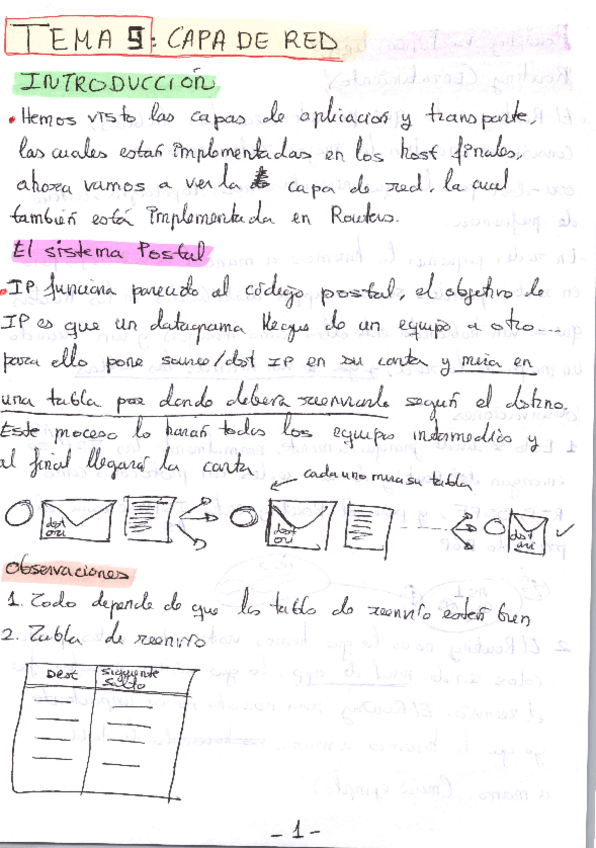 TEMA 5: CAPA DE RED
INTRODUCCIÓN
• Hemos visto las capas de aplicación y transporte,
las cuales están implementadas en los host finales,
ahora vamos a ver la capa de red, la cual
también está implementada en Routers.
El sistema Postal
• IP funciona parecido al código postal, el objetivo de
IP es que un datagrama llegue de un equipo a otro...
para ello pone source/dst IP en su carta y mira en
una tabla por donde deberá reenviarle según el destino.
Este proceso lo harán todos los equipos intermedios y
al final llegará la carta
cada uno mira su tabla
dst
ori
dst
ori
dst
ori
Observaciones
1. Todo depende de que las tabla de reenvío estén bien
2. Tabla de reenvío
Dest
Siguiente
Salto
- 1 -